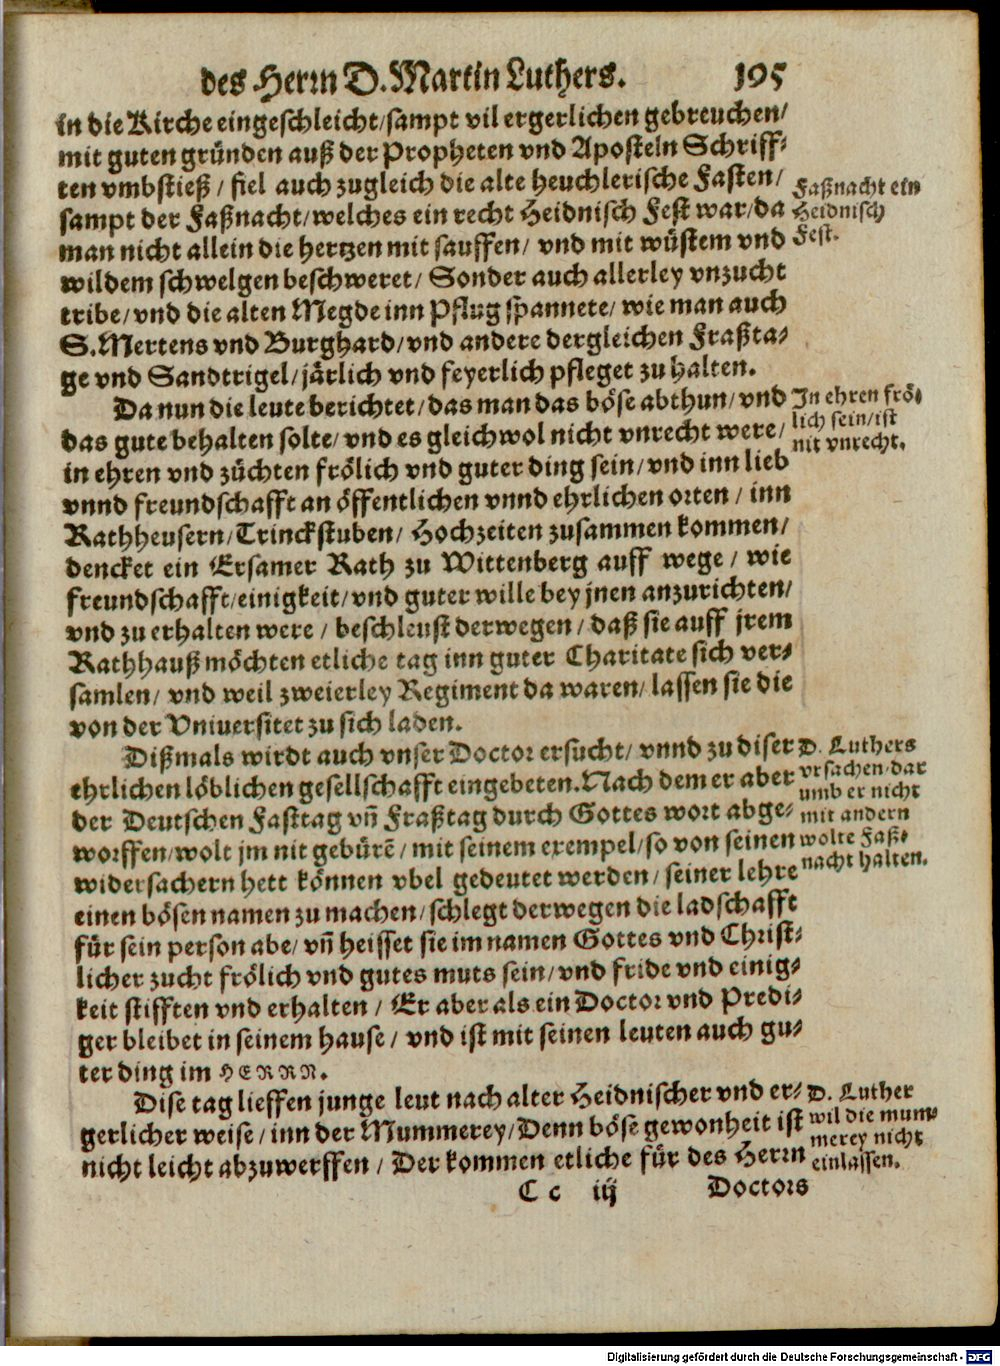 des Herrn D. Martin Luthers. 195
in die Kirche eingeschleicht/sampt vil ergerlichen gebreuchen/
mit guten gründen auß der Propheten vnd Aposteln Schriff-
ten vmbstieß / fiel auch zugleich die alte heuchlerische Fasten/
sampt der Faßnacht/welches ein recht Heidnisch Fest war/da
man nicht allein die hertzen mit sauffen/ vnd mit wüstem vnd
wildem schwelgen beschweret/ Sonder auch allerley vnzucht
tribe/vnd die alten Megde inn Pflug spannete/ wie man auch
S.Mertens vnd Burghard/vnd andere dergleichen Fraßta-
ge vnd Sandtrigel/järlich vnd feyerlich pfleget zu halten.
Faßnacht ein
Heidnisch
Fest.
Da nun die leute berichtet/das man das böse abthun/vnd
das gute behalten solte/ vnd es gleichwol nicht vnrecht were/
in ehren vnd züchten frölich vnd guter ding sein/vnd inn lieb
vnnd freundschafft an öffentlichen vnnd ehrlichen orten / inn
Rathheusern/Trinckstuben/ Hochzeiten zusammen kommen/
dencket ein Ersamer Rath zu Wittenberg auff wege / wie
freundschafft/einigkeit/vnd guter wille bey jnen anzurichten/
vnd zu erhalten were / beschleust derwegen / daß sie auff jrem
Rathhauß möchten etliche tag inn guter Charitate sich ver-
samlen/ vnd weil zweierley Regiment da waren/ lassen sie die
von der Vniuersitet zu sich laden.
In ehren frö-
lich sein/ist
nit vnrecht.
Dißmals wirdt auch vnser Doctor ersucht/ vnnd zu diser
ehrlichen löblichen gesellschafft eingebeten. Nach dem er aber
der Deutschen Fasttag vñ Fraßtag durch Gottes wort abge-
worffen/wolt jm nit gebürẽ/ mit seinem exempel/so von seinen
widersachern hett können vbel gedeutet werden/ seiner lehre
einen bösen namen zu machen/schlegt derwegen die ladschafft
für sein person abe/ vñ heisset sie im namen Gottes vnd Christ-
licher zucht frölich vnd gutes muts sein/vnd fride vnd einig-
keit stifften vnd erhalten / Er aber als ein Doctor vnd Predi-
ger bleibet in seinem hause / vnd ist mit seinen leuten auch gu-
ter ding im HERRN.
D. Luthers
vrsachen dar
umb er nicht
mit andern
wolte Faß-
nacht halten.
Dise tag lieffen junge leut nach alter Heidnischer vnd er-
gerlicher weise / inn der Mummerey/Denn böse gewonheit ist
nicht leicht abzuwerffen / Der kommen etliche für des Herrn
D. Luther
wil die mum-
merey nicht
einlassen.
C c iij Doctors
Digitalisierung gefördert durch die Deutsche Forschungsgemeinschaft - DFG